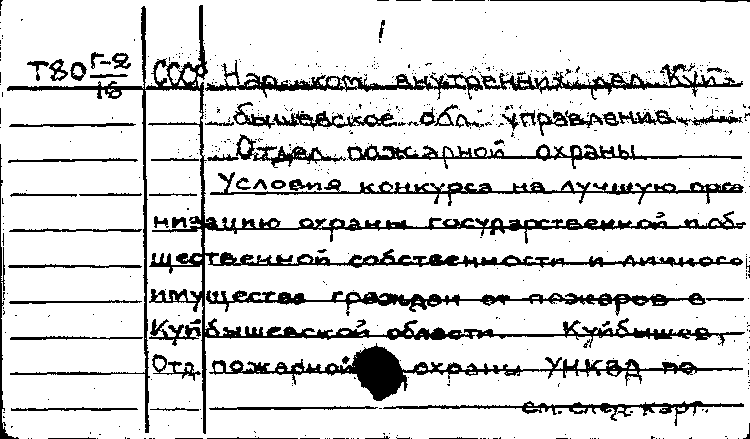 1
Т80 Г-2/16 СССР Нар. ком. внутренних дел Куй-
бышевское обл. управление
Отдел пожарной охраны
Условия конкурса на лучшую орга
низацию охраны государственной и об-
щественной собственности и личного
имущества граждан от пожаров в
Куйбышевской области. Куйбышев,
Отд. пожарной охраны УНКВД по
см. след. карт.